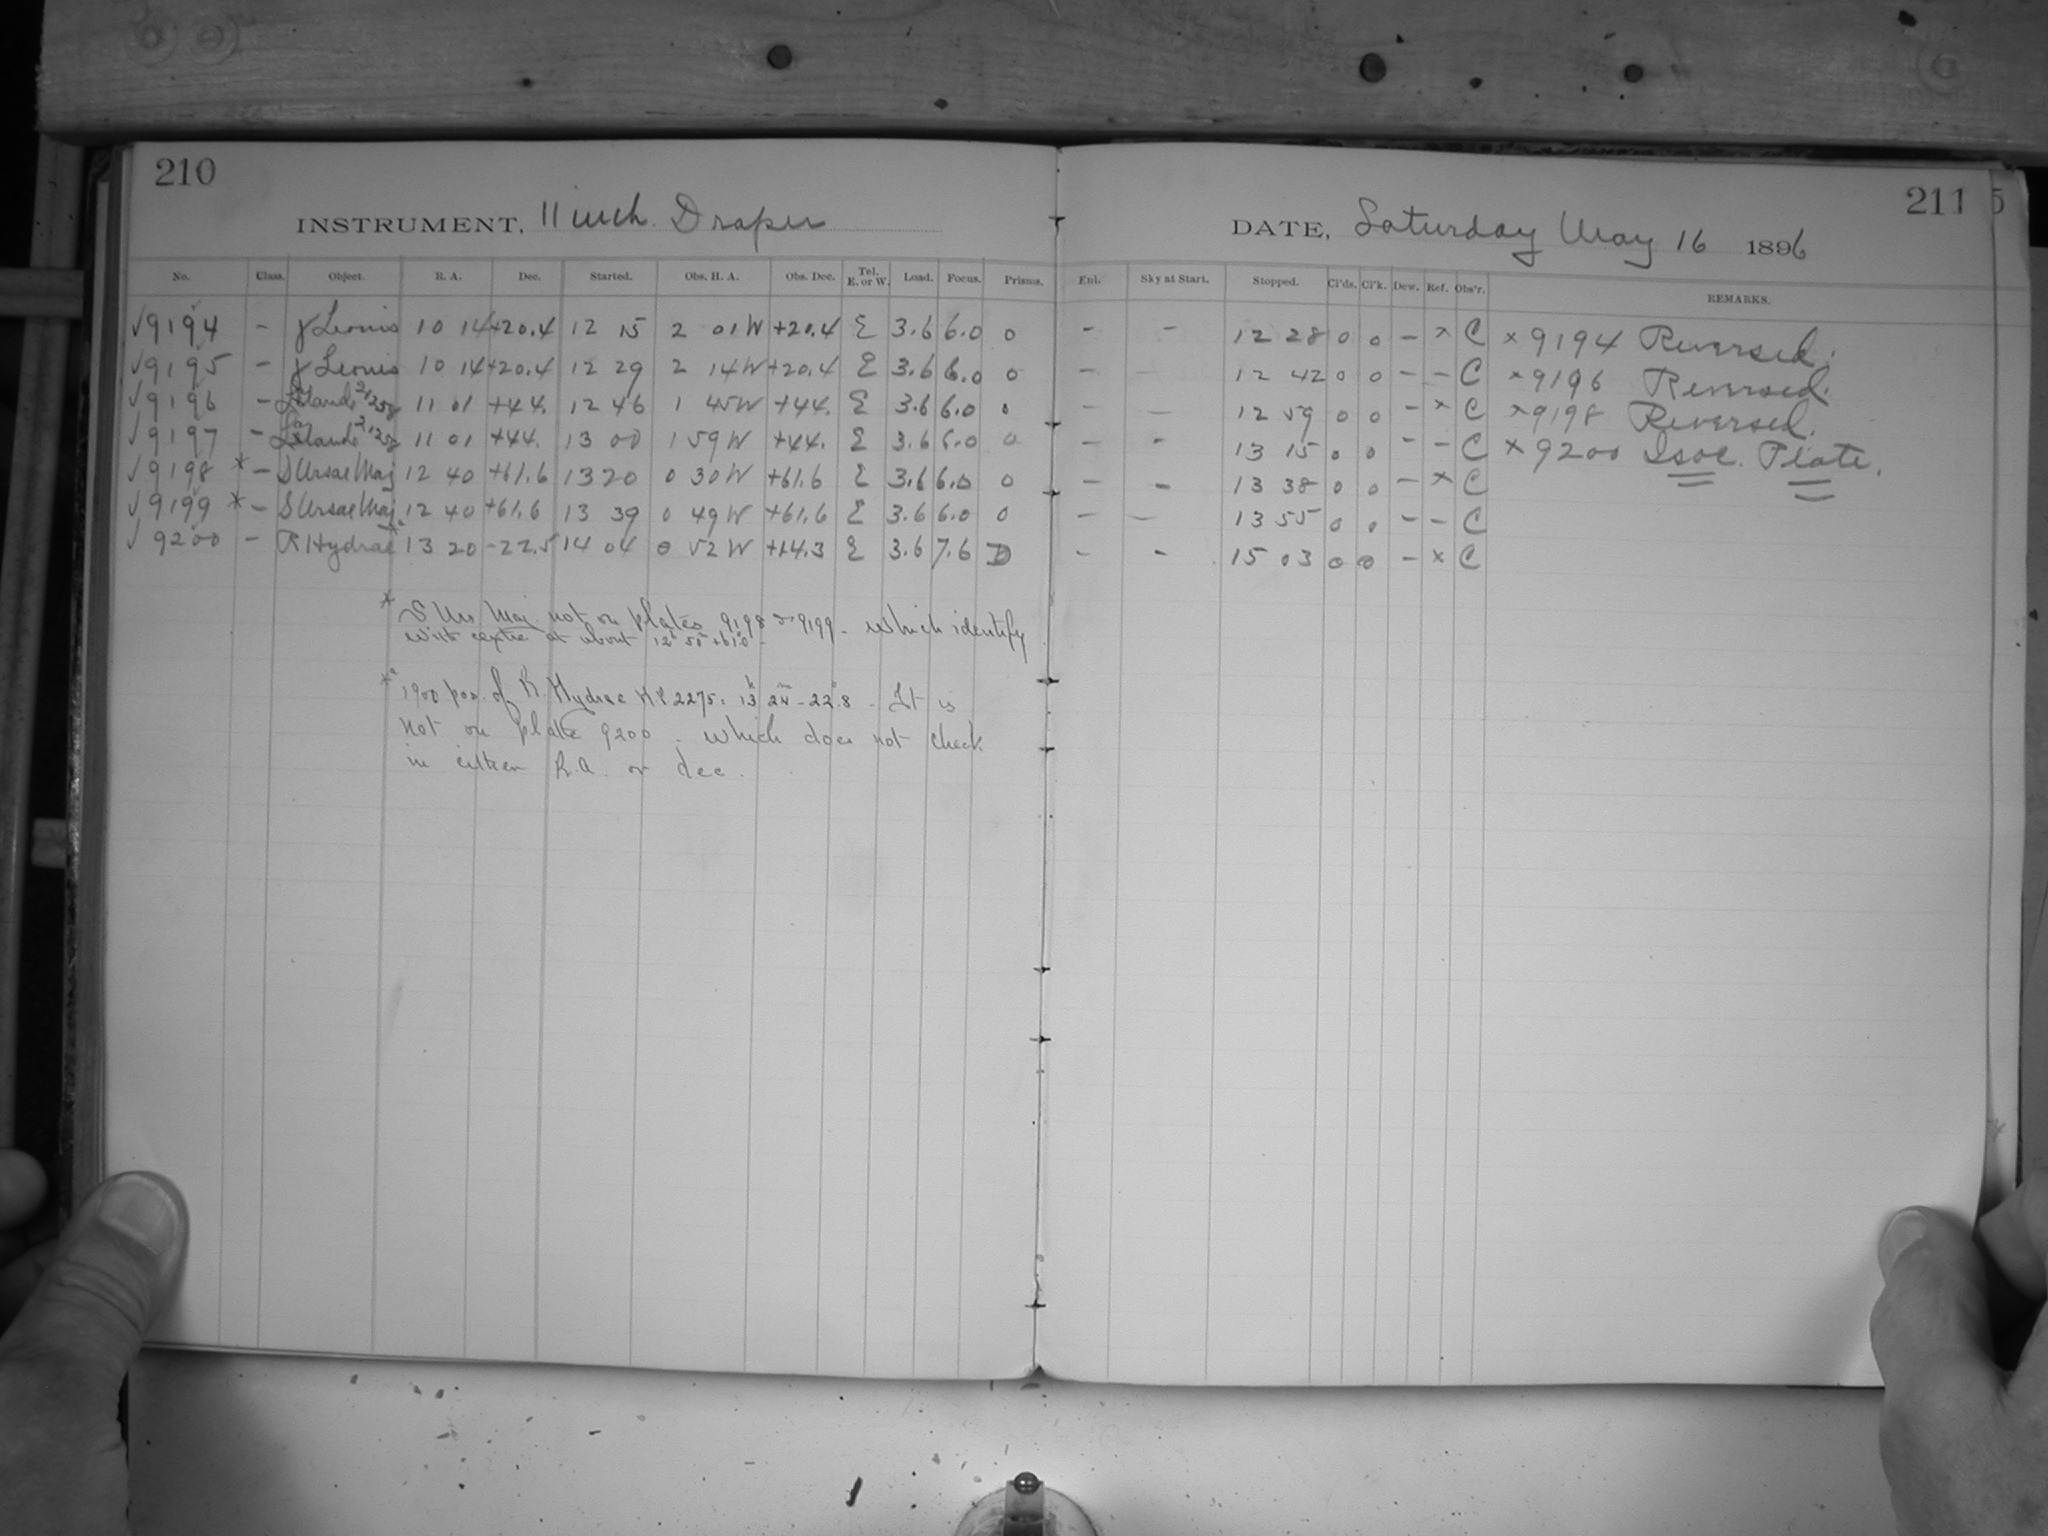 210
INSTRUMENT, 11 inch. Draper
No. Class. Object. R. A. Dec. Started. Obs. H. A. Obs. Dec. Tel. E. or W. Load. Focus. Prisms.
√9194 - γ Leonis 10 14 +20.4 12 15 2 01W +20.4 E 3.6 6.0 0
√9195 - γ Leonis 10 14 +20.4 12 29 2 14W +20.4 E 3.6 6.0 0
√9196 - Lalande 21258 11 01 +44. 12 46 1 45W +44. E 3.6 6.0 0
√9197 - Lalande 21258 11 01 +44. 13 00 1 59W +44. E 3.6 6.0 0
√9198 * - S Ursae Maj 12 40 +61.6 13 20 0 30W +61.6 E 3.6 6.0 0
√9199 * - S Ursae Maj 12 40 +61.6 13 39 0 49W +61.6 E 3.6 6.0 0
√9200 - R Hydrae * 13 20 -22.5 14 04 0 52W +14.3 E 3.6 7.6 D
* S Urs. Maj. not on plates 9198 & 9199 - which identify
with centre at about 12h 50m +61.0 -
* 1900 pos. of R. Hydrae H.P. 2275: 13h 24m - 22°.8 - It is
not on plate 9200 - which does not check
in either R.A. or dec.
211 5
DATE, Saturday May 16 1896
Enl. Sky at Start. Stopped. Cl'ds. Cl'k. Dew. Ref. Obs'r. REMARKS.
- - 12 28 0 0 - × C × 9194 Reversed.
- 12 42 0 0 - - C × 9196 Reversed.
- - 12 59 0 0 - × C × 9198 Reversed.
- - 13 15 0 0 - - C × 9200 Isoc. Plate.
- - 13 38 0 0 - × C
- - 13 55 0 0 - - C
- - 15 03 0 0 - × C